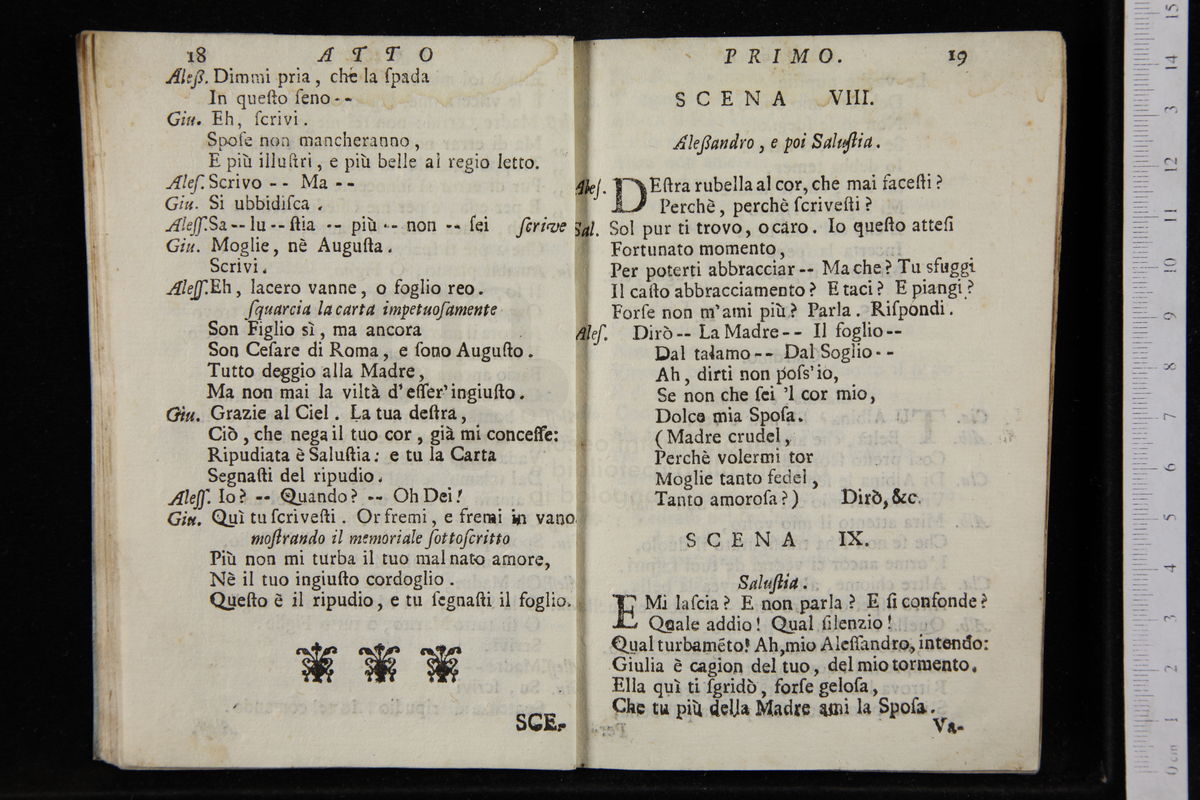 18 ATTO
Aleß. Dimmi pria, che la ſpada
In queſto ſeno--
Giu. Eh, ſcrivi.
Spoſe non mancheranno,
E più illuſtri, e più belle al regio letto.
Aleſ. Scrivo -- Ma --
Giu. Si ubbidiſca.
Aleſſ. Sa -- lu -- ſtia -- più -- non -- ſei ſcrive
Giu. Moglie, nè Auguſta.
Scrivi.
Aleſſ. Eh, lacero vanne, o foglio reo.
ſquarcia la carta impetuoſamente
Son Figlio sì, ma ancora
Son Ceſare di Roma, e ſono Auguſto.
Tutto deggio alla Madre,
Ma non mai la viltà d'eſſer'ingiuſto.
Giu. Grazie al Ciel. La tua deſtra,
Ciò, che nega il tuo cor, già mi conceſſe:
Ripudiata è Saluſtia: e tu la Carta
Segnaſti del ripudio.
Aleſſ. Io? -- Quando? -- Oh Dei!
Giu. Quì tu ſcriveſti. Or fremi, e fremi in vano.
moſtrando il memoriale ſottoſcritto
Più non mi turba il tuo mal nato amore,
Nè il tuo ingiuſto cordoglio.
Queſto è il ripudio, e tu ſegnaſti il foglio.
SCE-
PRIMO. 19
SCENA VIII.
Aleßandro, e poi Saluſtia.
Aleſ. DEſtra rubella al cor, che mai faceſti?
Perchè, perchè ſcriveſti?
Sal. Sol pur ti trovo, o caro. Io queſto atteſi
Fortunato momento,
Per poterti abbracciar -- Ma che? Tu sfuggi
Il caſto abbracciamento? E taci? E piangi?
Forſe non m'ami più? Parla. Riſpondi.
Aleſ. Dirò -- La Madre -- Il foglio --
Dal talamo -- Dal Soglio --
Ah, dirti non poſs'io,
Se non che ſei 'l cor mio,
Dolce mia Spoſa.
(Madre crudel,
Perchè volermi tor
Moglie tanto fedel,
Tanto amoroſa?) Dirò, &c.
SCENA IX.
Saluſtia.
EMi laſcia? E non parla? E ſi confonde?
Quale addio! Qual ſilenzio!
Qual turbamẽto! Ah, mio Aleſſandro, intendo:
Giulia è cagion del tuo, del mio tormento.
Ella quì ti ſgridò, forſe geloſa,
Che tu più della Madre ami la Spoſa.
Va-